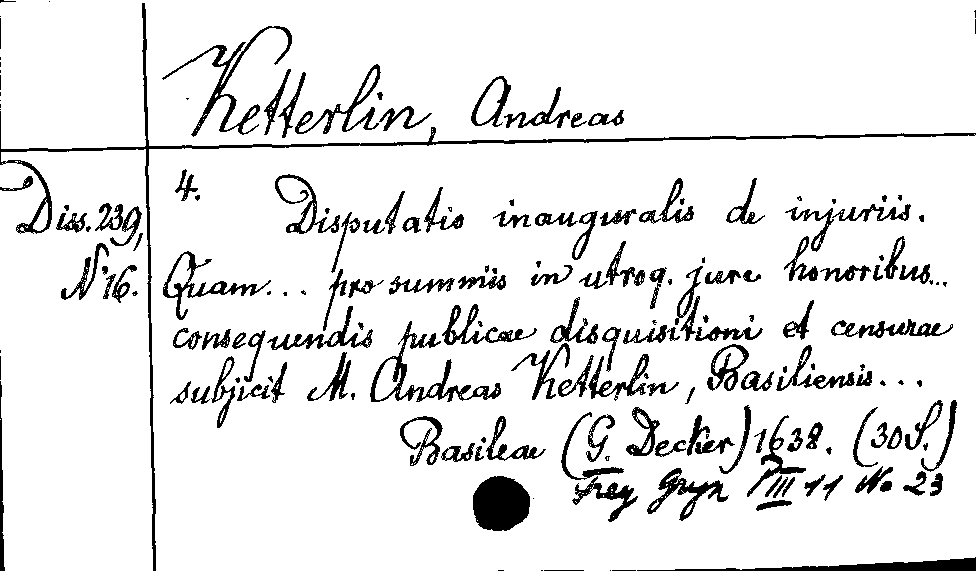 Ketterlin, Andreas
Diss. 239,
N° 16.
4. Disputatio inauguralis de injuriis.
Quam... pro summis in utroq. jure honoribus...
consequendis publicae disquisitioni et censurae
subjicit M. Andreas Ketterlin, Basiliensis...
Basileae (G. Decker) 1638. (30 S.)
Frey Gryn III 11 No 23